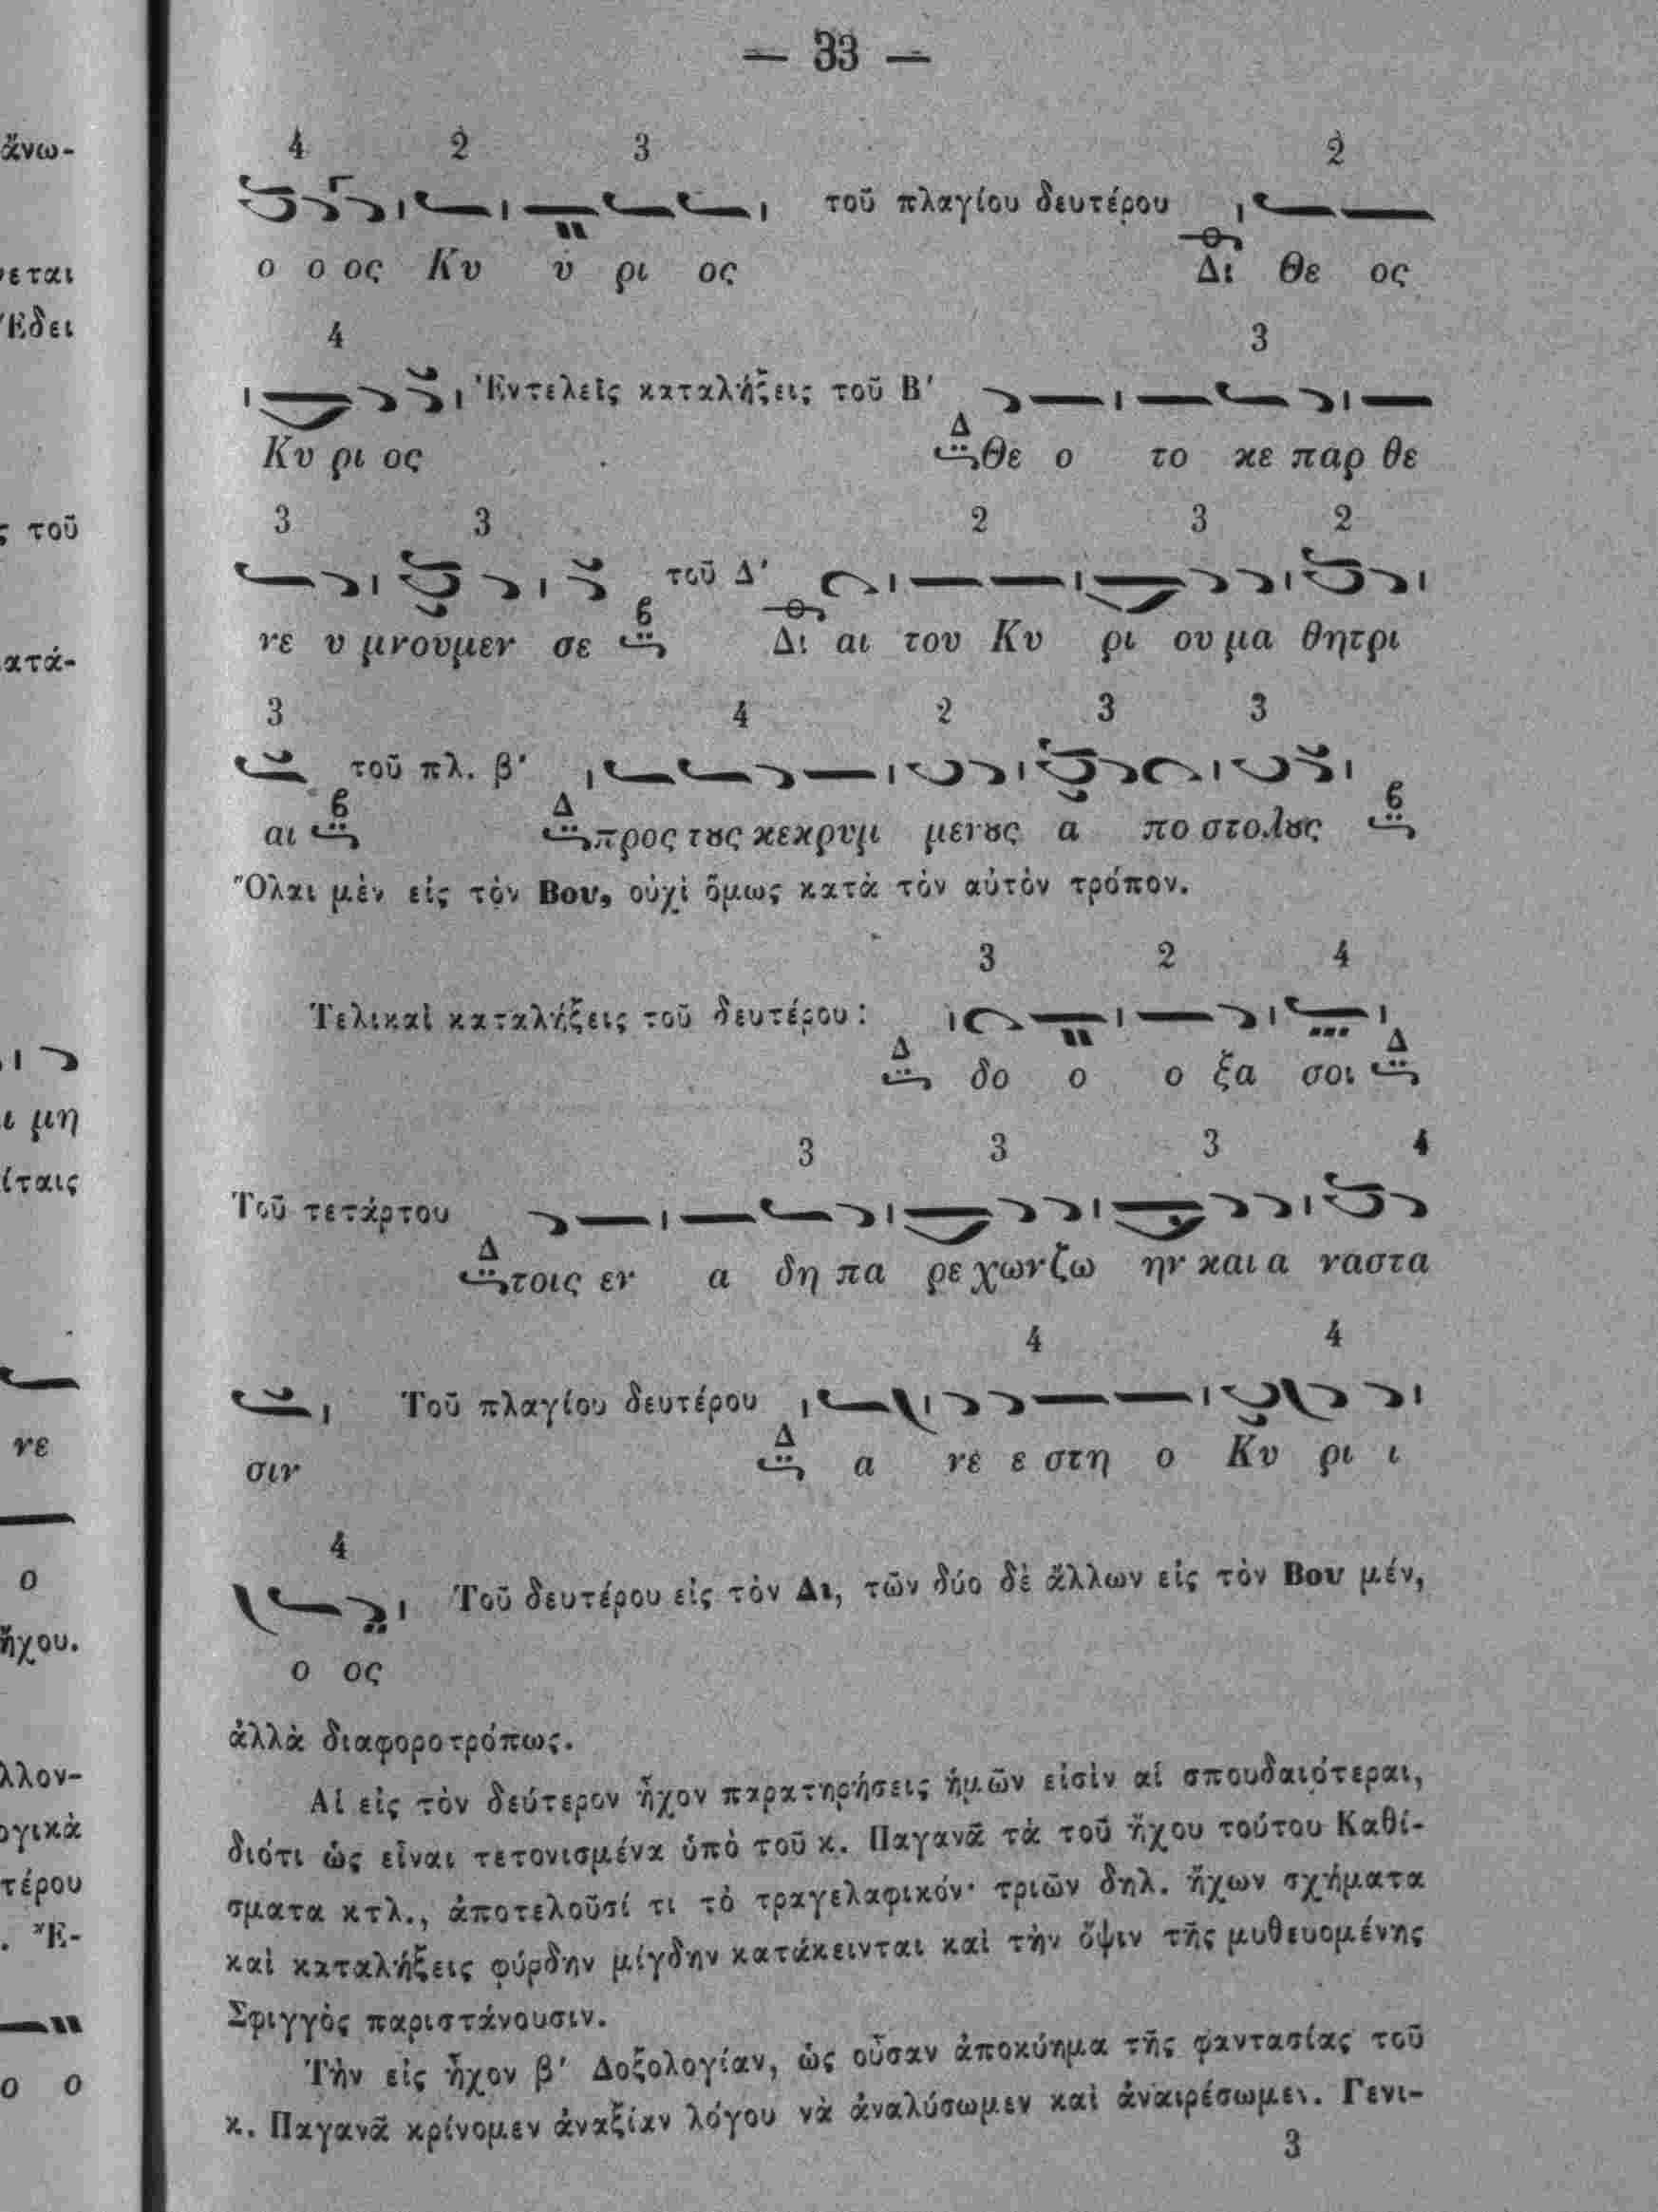 — 33 —
4 2 3 2
τοῦ πλαγίου δευτέρου
ο ο ος Κυ υ ρι ος Δι Θε ος
4 3
Ἐντελεῖς καταλήξεις τοῦ Β'
Δ
Κυ ρι ος Θε ο το κε παρ θε
3 3 2 3 2
τοῦ Δ'
νε υ μνουμεν σε Δι αι του Κυ ρι ου μα θητρι
3 4 2 3 3
τοῦ πλ. β'
Δ
αι προς τȣς κεκρυμ μενȣς α πο στολȣς
Ὅλαι μὲν εἰς τὸν Βου, οὐχὶ ὅμως κατὰ τὸν αὐτὸν τρόπον.
3 2 4
Τελικαὶ καταλήξεις τοῦ δευτέρου:
Δ Δ
δο ο ο ξα σοι
3 3 3 4
Τοῦ τετάρτου
Δ
τοις εν α δη πα ρε χων ζω ην και α ναστα
4 4
Τοῦ πλαγίου δευτέρου
Δ
σιν α νε ε στη ο Κυ ρι ι
4
Τοῦ δευτέρου εἰς τὸν Δι, τῶν δύο δὲ ἄλλων εἰς τὸν Βου μέν,
ο ος
ἀλλὰ διαφοροτρόπως.
Αἱ εἰς τὸν δεύτερον ἦχον παρατηρήσεις ἡμῶν εἰσὶν αἱ σπουδαιότεραι,
διότι ὡς εἶναι τετονισμένα ὑπὸ τοῦ κ. Παγανᾶ τὰ τοῦ ἤχου τούτου Καθί-
σματα κτλ., ἀποτελοῦσί τι τὸ τραγελαφικόν· τριῶν δηλ. ἤχων σχήματα
καὶ καταλήξεις φύρδην μίγδην κατάκεινται καὶ τὴν ὄψιν τῆς μυθευομένης
Σφιγγὸς παριστάνουσιν.
Τὴν εἰς ἦχον β' Δοξολογίαν, ὡς οὖσαν ἀποκύημα τῆς φαντασίας τοῦ
κ. Παγανᾶ κρίνομεν ἀναξίαν λόγου νὰ ἀναλύσωμεν καὶ ἀναιρέσωμεν. Γενι-
3
ἄνω-
εται
Ἔδει
τοῦ
ατά-
μη
ίταις
νε
ο
ἤχου.
λλον-
ογικὰ
τέρου
. Ἔ-
ο ο